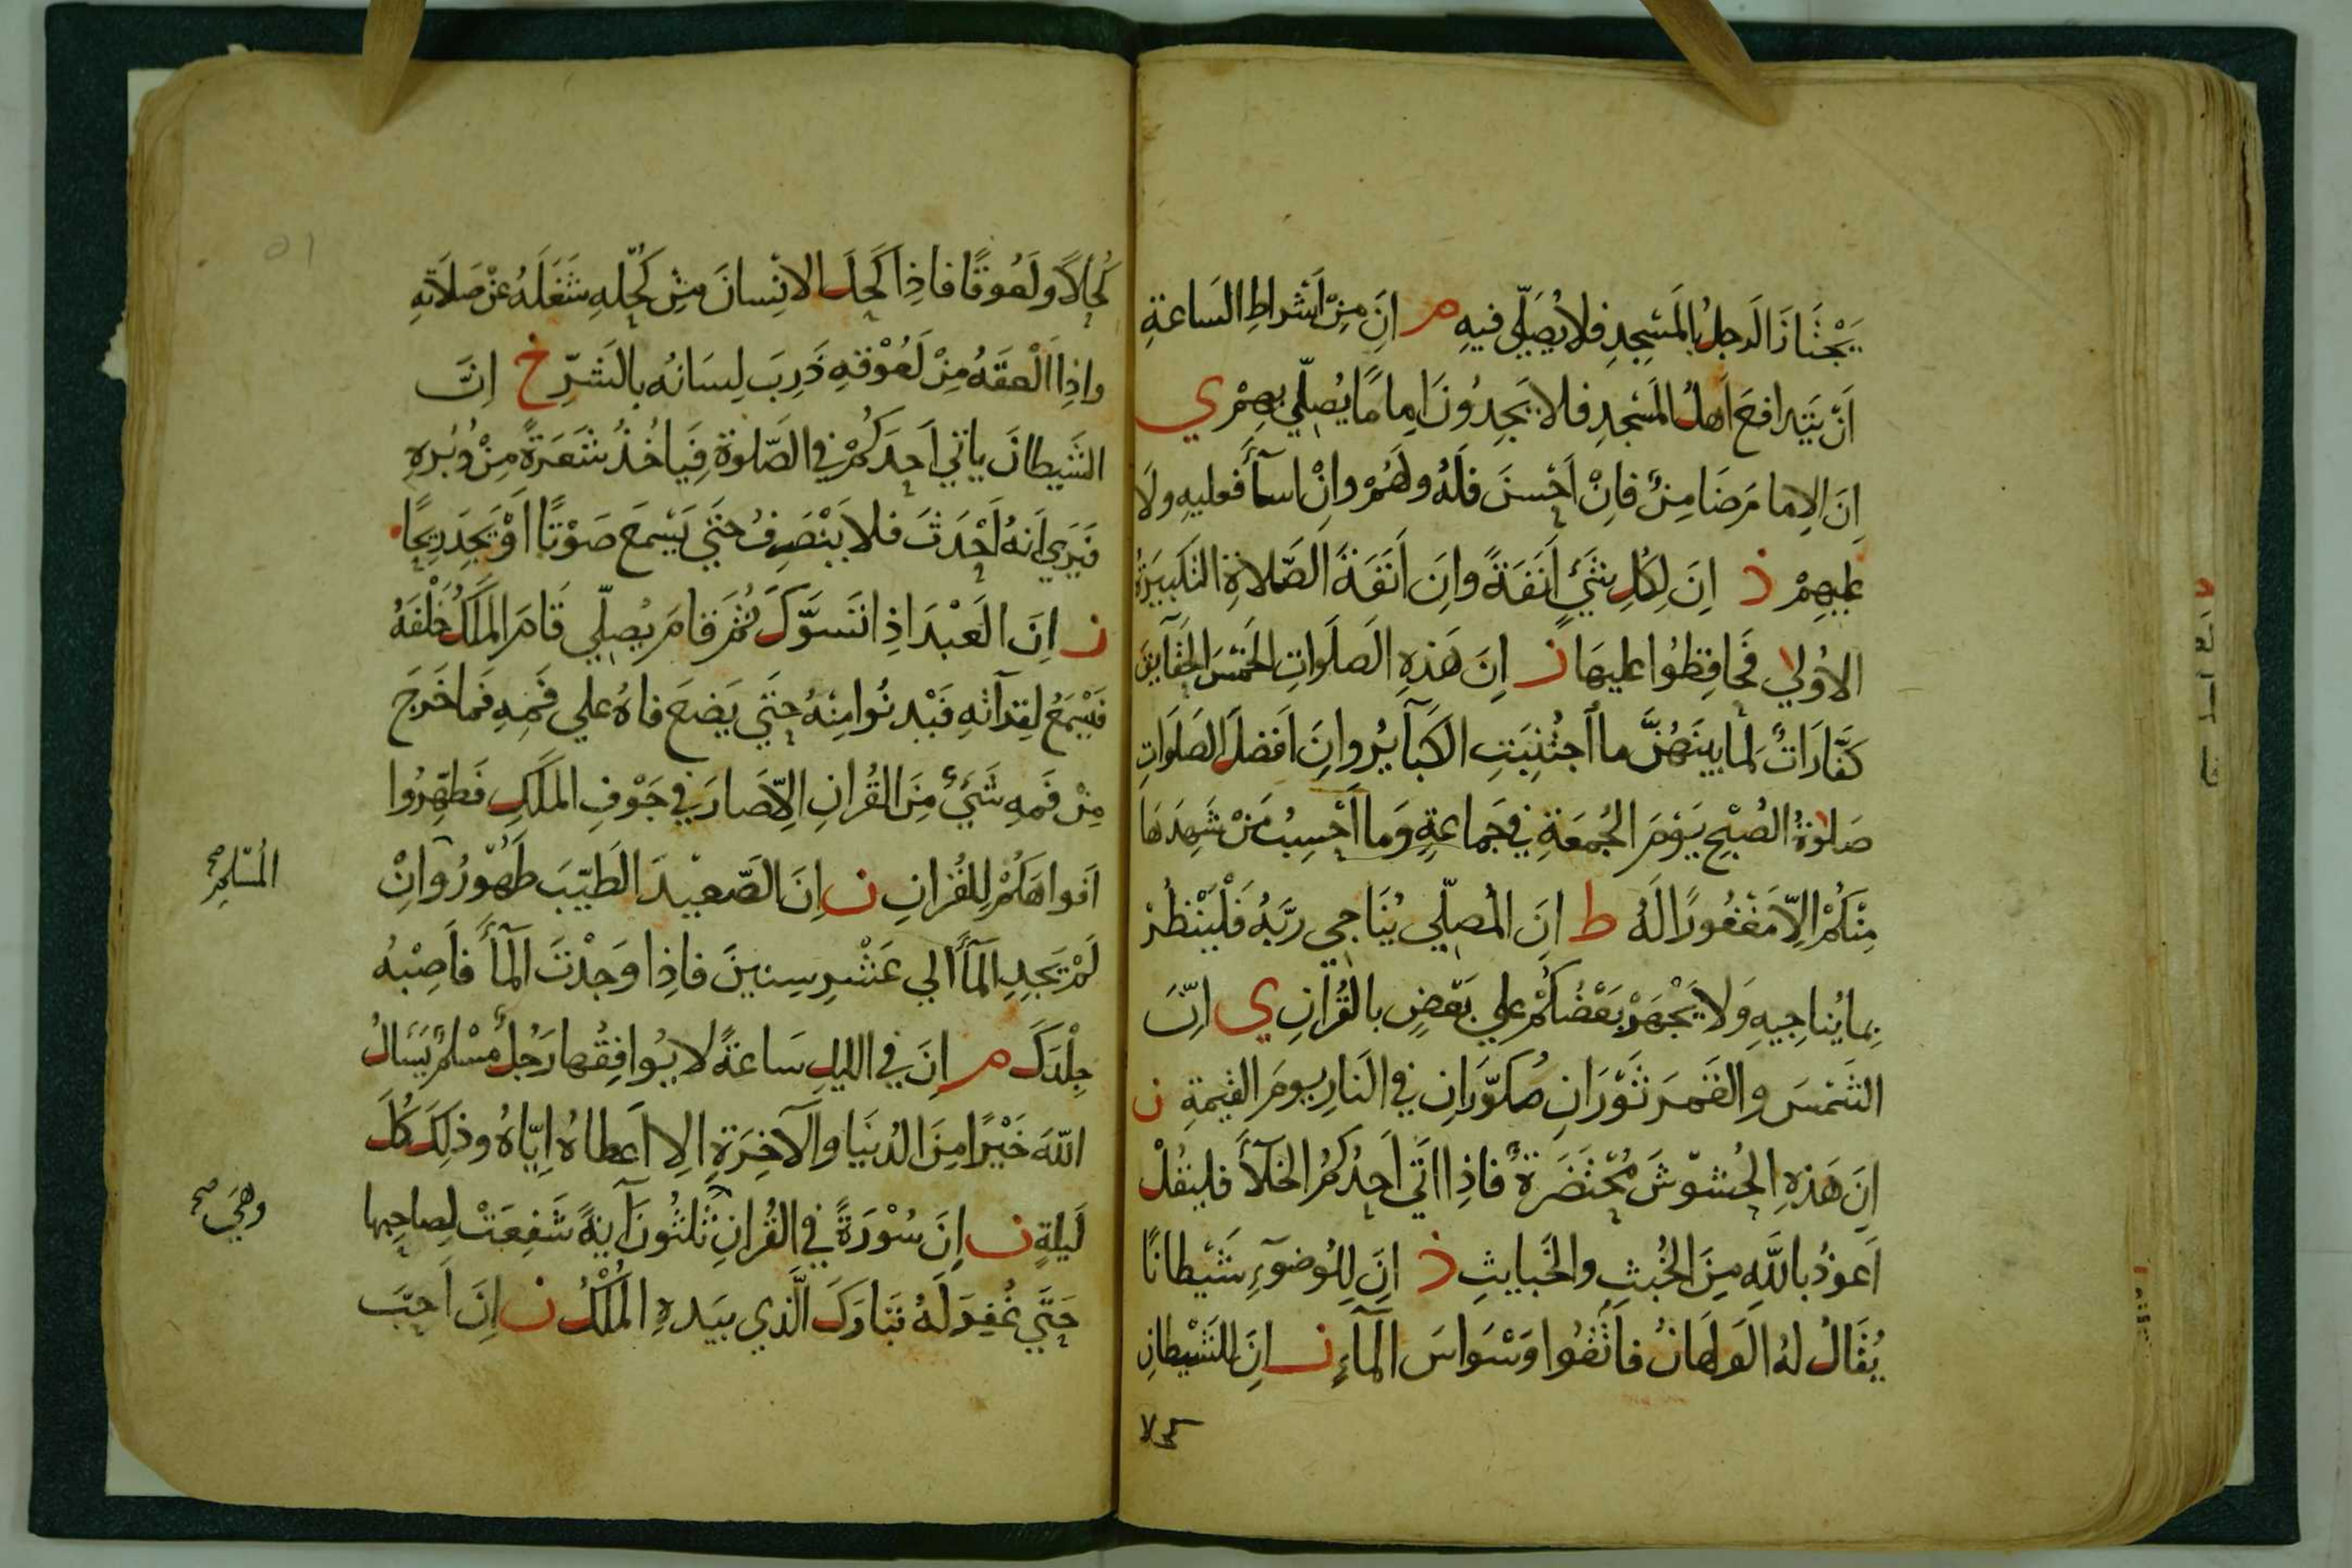 يَجْتَازَ الرَجلُ بالمَسْجِدِ فلا يُصَلّي فيهِ م اِنَ مِنْ اَشْراطِ السَاعةِ
اَنْ يَتَدافعَ اَهلُ المَسْجدِ فلا يَجِدُونَ اِمامًا يُصلّي بِهِمْ ي
اِنَ الاِمامَ ضَامِنٌ فاِنْ اَحْسنَ فَلَهُ ولَهُمْ واِنْ اسآءَ فعليهِ ولَا
عليهِمْ ذ اِنَ لِكُلِ شَيْءٍ اَنَفَةً واِنَ اَنَفَةَ الصّلاةِ التكبيَرةُ
الاُولي فَحَافِظُوا عليهَا ن اِنَ هَذِهِ الصَلَواتِ الخَمْسَ الحَقآيقَ
كَفّارَاتٌ لمَا بينَهُنَّ ما اُجتُنِبَتِ الكَبآيرُ واِنَ اَفضلَ الصَلَواتِ
صَلوةُ الصُبْحِ يَوْمَ الجُمعَةِ في جَماعةٍ وَما اَحْسِبُ مَنْ شَهِدَهَا
مِنْكُمْ اِلاّ مَغْفُورًا لَهُ ط اِنَ المُصلّي يُنَاجِي ربّهُ فَلْيَنْظُرْ
بِما يُناجِيهِ وَلا يَجْهَرْ بَعْضُكُمْ علي بَعْضٍ بالقُرْانِ ي اِنّ
الشَمْسَ والقَمرَ ثَوْرَانِ مُكوّرَانِ في النَارِ يومَ القيمةِ ن
اِنَ هَذِهِ الحُشوّشَ مُحْتَضَرَةٌ فاذِا اتَي اَحدُكُمُ الخَلآءَ فليقُلْ
اَعوذُ باللهِ مِنَ الخُبثِ والخَبايثِ ذ اِنَ لِلوُضوءِ شَيْطانًا
يُقَالُ لهُ الوَلَهَانُ فاتّقُوا وَسْواسَ المآءِ ن اِنَ للشَيْطانِ
كحلا
كُحْلًا ولَعُوقًا فاذِا كَحلَ الاِنْسانَ مِنْ كُحْلِهِ شَغَلَهُ عنْ صَلَاتهِ
واِذا اَلْعقَهُ مِنْ لَعُوْقهِ ذَرِبَ لِسَانُه بالشَرِّ خ اِنَّ
الشَيطانَ ياتي اَحدَكُمْ في الصّلوةِ فيَاخُذُ شَعَرَةً مِنْ دُبُرِهِ
فَيَرَي اَنهُ اَحْدَثَ فلا يَنْصَرِفُ حتَي يَسْمعَ صَوْتًا اَوْ يَجِدَ رِيحًا
ن اِنَ العَبْدَ اذِا تَسوّكَ ثمَ قامَ يُصلّي قَامَ المَلَكُ خَلْفَهُ
فَيَسْمَعُ لِقِرآتهِ فَيَدْنُوا مِنْهُ حتَي يَضعَ فاهُ علي فَمِهِ فَما خَرجَ
مِنْ فَمهِ شَيْءٌ مِنَ القُرانِ اِلاّ صَارَ في جَوْفِ المَلَكِ فَطهِّرُوا
اَفواهَكُمْ لِلقُرْانِ ن اِنَ الصّعيْدَ الطَيّبَ طَهُورُ واِنْ
المُسْلِمِ صح
لَمْ تَجِدِ المآءَ الي عَشْرِ سِنينَ فاذِا وَجَدْتَ المآءَ فاَصِبْهُ
جِلْدَكَ م اِنَ في الليلِ سَاعةً لا يوُافِقُها رَجُلٌ مُسْلمٌ يَسْالُ
اللهَ خَيْرًا مِنَ الدُنيَا والآخِرَةِ اِلا اَعطاهُ اِيّاهُ وذلِكَ كُلَ
لَيلةٍ ن اِنَ سُوْرَةً في القُرْانِ ثلثُونَ آيةً شَفعَتْ لِصاحِبها
وهَي صح
حَتَّي غُفِرَ لَهُ تَبَارَكَ الَّذي بيَدهِ المُلْكُ ن اِنَ اَحبَ